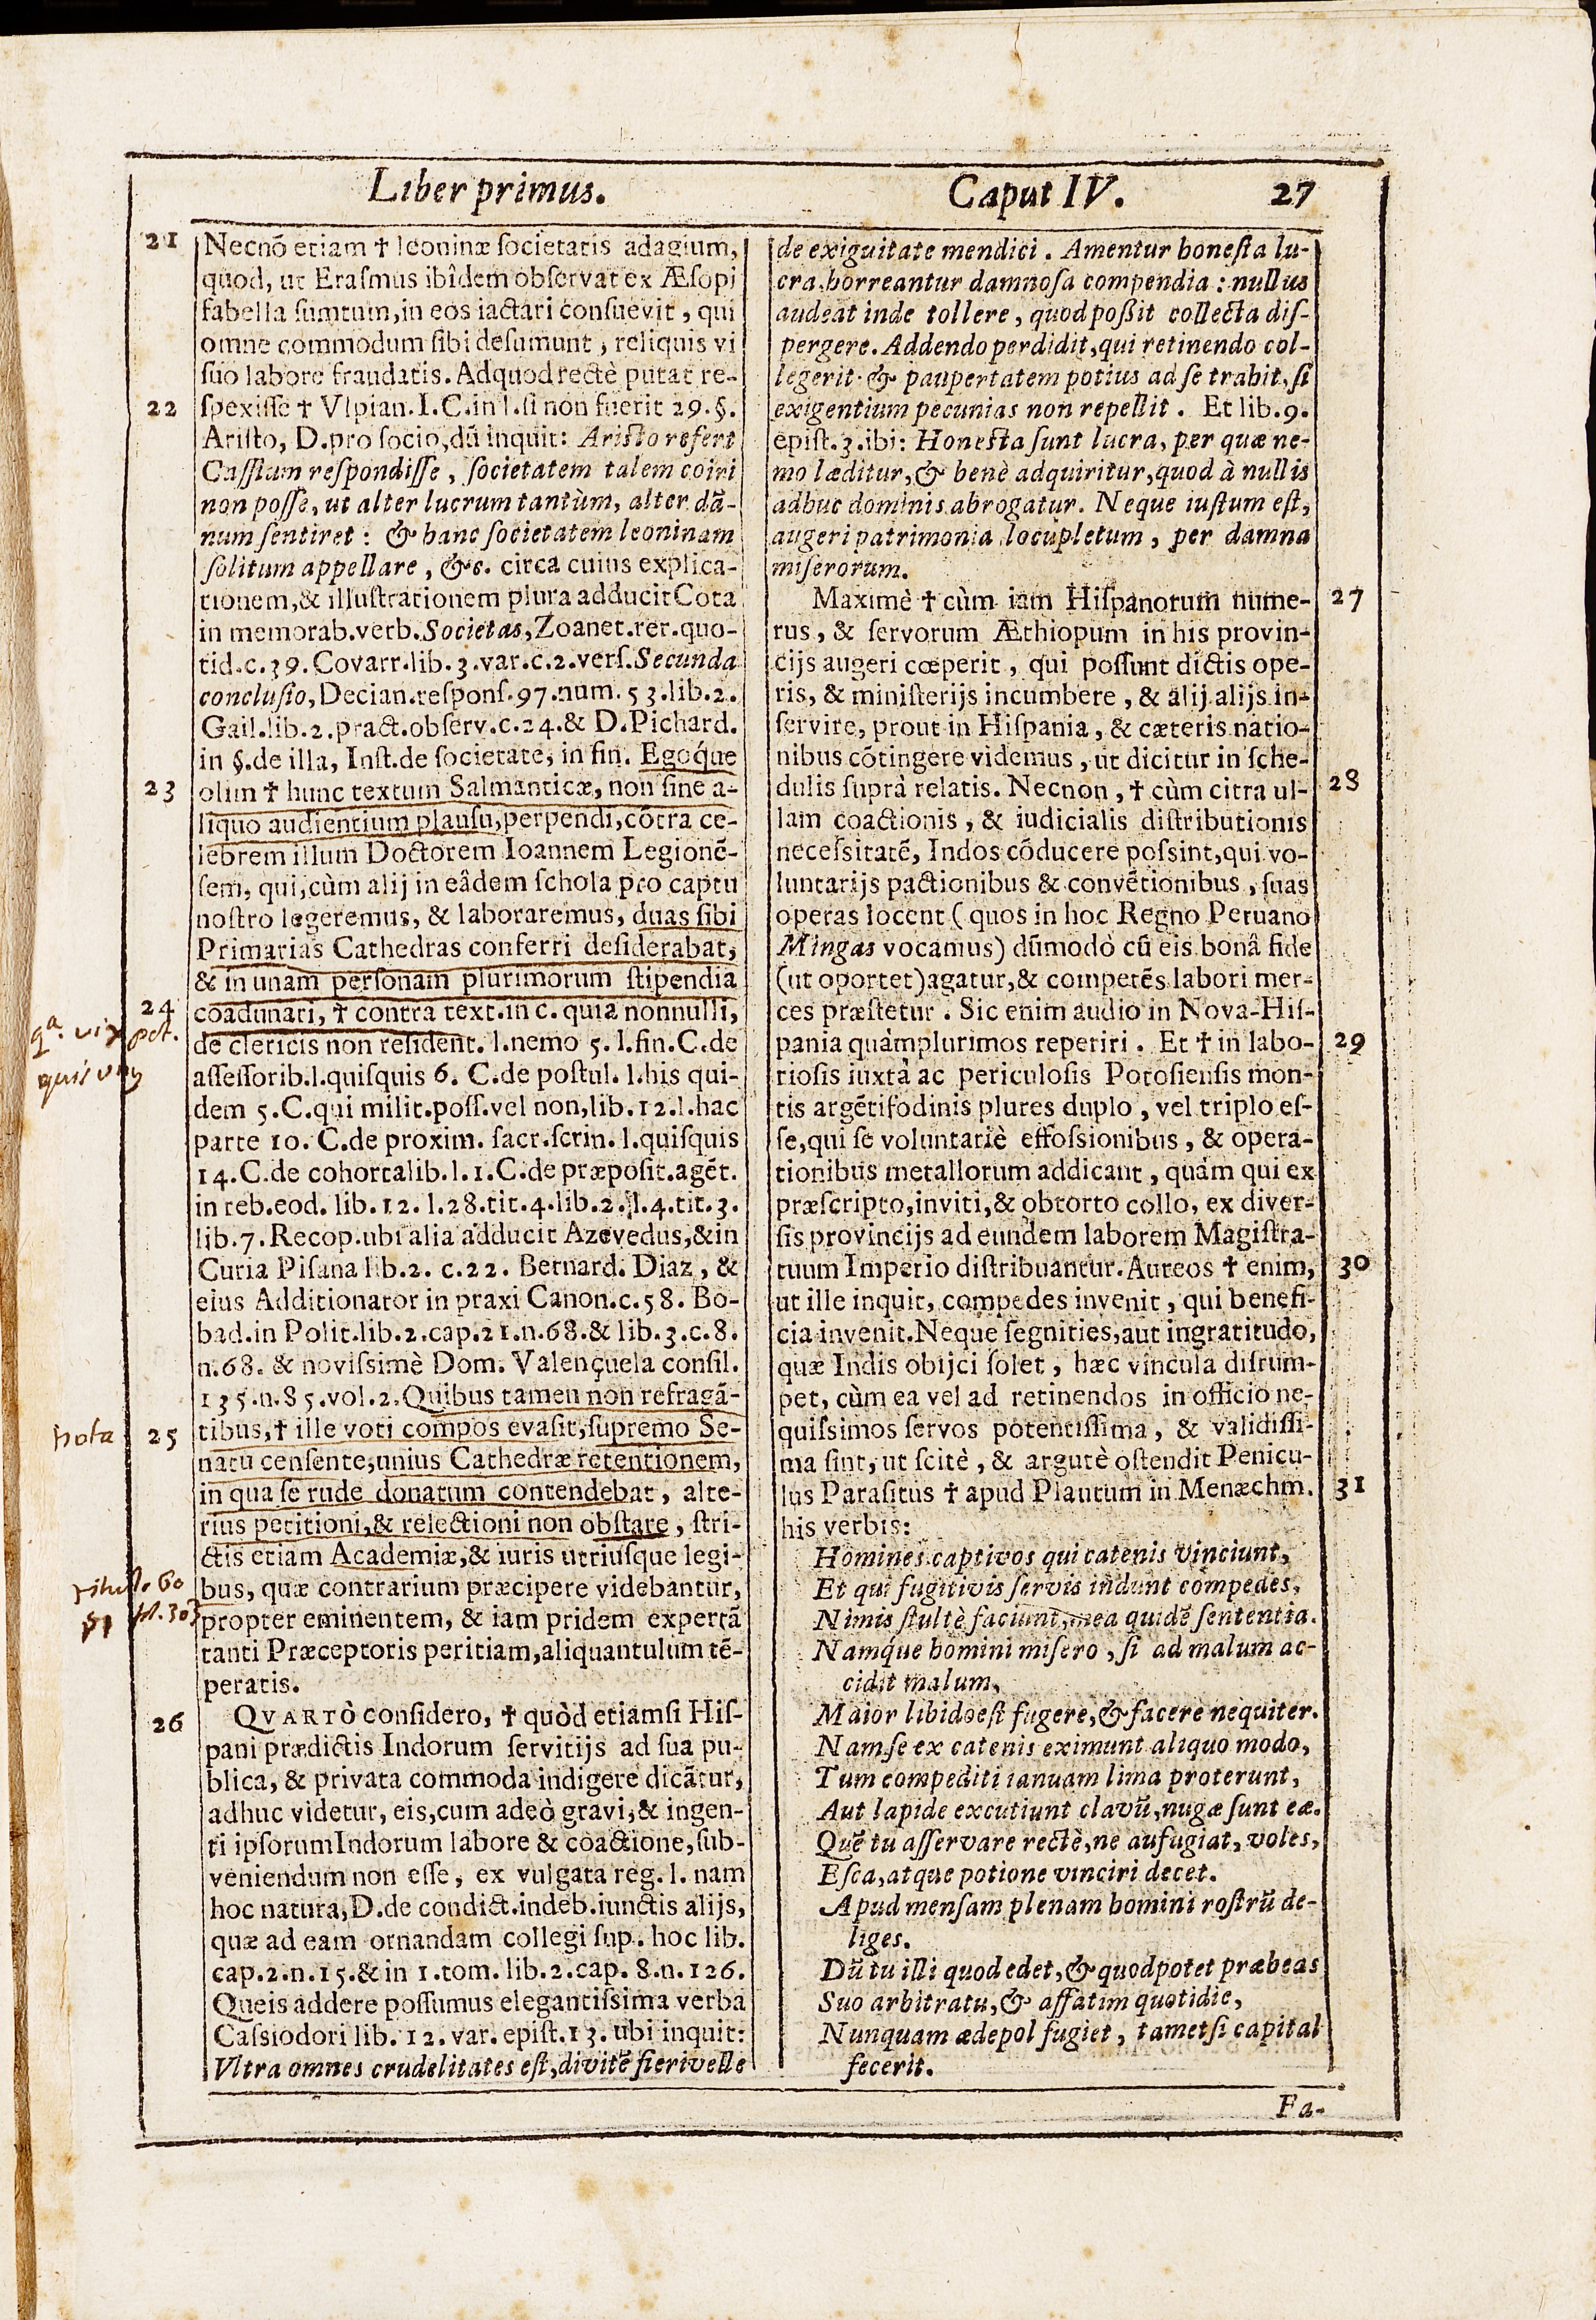 Liber primus.
Caput IV. 27
21 Necnõ etiam † leoninæ ſocietatis adagium,
quod, ut Eraſmus ibîdem obſervat ex Æſopi
fabella ſumtum, in eos iactari conſuevit, qui
omne commodum ſibi deſumunt, reliquis vi
ſuo labore fraudatis. Ad quod rectè putat re-
22 ſpexiſſe † Vlpian. I. C. in l. ſi non fuerit 29. §.
Ariſto, D. pro ſocio, dũ inquit: Ariſto refert
Caſſium reſpondiſſe, ſocietatem talem coiri
non poſſe, ut alter lucrum tantùm, alter dã-
num ſentiret: & hanc ſocietatem leoninam
ſolitum appellare, &c. circa cuius explica-
tionem, & illuſtrationem plura adducit Cota
in memorab. verb. Societas, Zoanet. rer. quo-
tid. c. 39. Covarr. lib. 3. var. c. 2. verſ. Secunda
concluſio, Decian. reſponſ. 97. num. 53. lib. 2.
Gail. lib. 2. pract. obſerv. c. 24. & D. Pichard.
in §. de illa, Inſt. de ſocietate, in fin. Egoq́ue
23 olim † hunc textum Salmanticæ, non ſine a-
liquo audientium plauſu, perpendi, cõtra ce-
lebrem illum Doctorem Ioannem Legionẽ-
ſem, qui, cùm alij in eâdem ſchola pro captu
noſtro legeremus, & laboraremus, duas ſibi
Primarias Cathedras conferri deſiderabat,
& in unam perſonam plurimorum ſtipendia
24 coadunari, † contra text. in c. quia nonnulli,
de clericis non reſident. l. nemo 5. l. fin. C. de
aſſeſſorib. l. quiſquis 6. C. de poſtul. l. his qui-
dem 5. C. qui milit. poſſ. vel non, lib. 12. l. hac
parte 10. C. de proxim. ſacr. ſcrin. l. quiſquis
14. C. de cohortalib. l. 1. C. de præpoſit. agẽt.
in reb. eod. lib. 12. l. 28. tit. 4. lib. 2. l. 4. tit. 3.
lib. 7. Recop. ubi alia adducit Azevedus, & in
Curia Piſana lib. 2. c. 22. Bernard. Diaz, &
eius Additionator in praxi Canon. c. 58. Bo-
bad. in Polit. lib. 2. cap. 21. n. 68. & lib. 3. c. 8.
n. 68. & noviſsimè Dom. Valençuela conſil.
135. n. 85. vol. 2. Quibus tamen non refragã-
nota 25 tibus, † ille voti compos evaſit, ſupremo Se-
natu cenſente, unius Cathedræ retentionem,
in qua ſe rude donatum contendebat, alte-
rius petitioni, & relectioni non obſtare, ſtri-
ctis etiam Academiæ, & iuris utriuſque legi-
bus, quæ contrarium præcipere videbantur,
propter eminentem, & iam pridem expertã
tanti Præceptoris peritiam, aliquantulum tẽ-
peratis.
26 QVARTÒ conſidero, † quòd etiamſi Hiſ-
pani prædictis Indorum ſervitijs ad ſua pu-
blica, & privata commoda indigere dicãtur,
adhuc videtur, eis, cum adeò gravi, & ingen-
ti ipſorum Indorum labore & coactione, ſub-
veniendum non eſſe, ex vulgata reg. l. nam
hoc natura, D. de condict. indeb. iunctis alijs,
quæ ad eam ornandam collegi ſup. hoc lib.
cap. 2. n. 15. & in 1. tom. lib. 2. cap. 8. n. 126.
Queis addere poſſumus elegantiſsima verba
Caſsiodori lib. 12. var. epiſt. 13. ubi inquit:
Vltra omnes crudelitates eſt, divitẽ fieri velle
de exiguitate mendici. Amentur honeſta lu-
cra, horreantur damnoſa compendia: nullus
audeat inde tollere, quod poßit collecta diſ-
pergere. Addendo perdidit, qui retinendo col-
legerit & paupertatem potius ad ſe trahit, ſi
exigentium pecunias non repellit. Et lib. 9.
epiſt. 3. ibi: Honeſta ſunt lucra, per quæ ne-
mo læditur, & benè adquiritur, quod à nullis
adhuc dominis abrogatur. Neque iuſtum eſt,
augeri patrimonia locupletum, per damna
miſerorum.
Maximè † cùm iam Hiſpanorum nume- 27
rus, & ſervorum Æthiopum in his provin-
cijs augeri cœperit, qui poſſunt dictis ope-
ris, & miniſterijs incumbere, & alij alijs in-
ſervire, prout in Hiſpania, & cæteris natio-
nibus cõtingere videmus, ut dicitur in ſche-
dulis ſuprà relatis. Necnon, † cùm citra ul- 28
lam coactionis, & iudicialis diſtributionis
neceſsitatẽ, Indos cõducere poſsint, qui vo-
luntarijs pactionibus & convẽtionibus, ſuas
operas locent (quos in hoc Regno Peruano
Mingas vocamus) dũmodò cũ eis bonâ fide
(ut oportet) agatur, & competẽs labori mer-
ces præſtetur. Sic enim audio in Nova-Hiſ-
pania quàmplurimos reperiri. Et † in labo- 29
rioſis iuxtà ac periculoſis Potoſienſis mon-
tis argẽtifodinis plures duplo, vel triplo eſ-
ſe, qui ſe voluntariè effoſsionibus, & opera-
tionibus metallorum addicant, quàm qui ex
præſcripto, inviti, & obtorto collo, ex diver-
ſis provincijs ad eundem laborem Magiſtra-
tuum Imperio diſtribuantur. Aureos † enim, 30
ut ille inquit, compedes invenit, qui benefi-
cia invenit. Neque ſegnities, aut ingratitudo,
quæ Indis obijci ſolet, hæc vincula diſrum-
pet, cùm ea vel ad retinendos in officio ne-
quiſsimos ſervos potentiſſima, & validiſſi-
ma ſint, ut ſcitè, & argutè oſtendit Penicu-
lus Paraſitus † apud Plautum in Menæchm. 31
his verbis:
Homines captivos qui catenis vinciunt,
Et qui fugitivis ſervis indunt compedes,
Nimis ſtultè faciunt, mea quidẽ ſententia.
Namq́ue homini miſero, ſi ad malum ac-
cidit malum,
Maior libido eſt fugere, & facere nequiter.
Nam ſe ex catenis eximunt aliquo modo,
Tum compediti ianuam lima proterunt,
Aut lapide excutiunt clavũ, nugæ ſunt eæ.
Quẽ tu aſſervare rectè, ne aufugiat, voles,
Eſca, atque potione vinciri decet.
Apud menſam plenam homini roſtrũ de-
liges.
Dũ tu illi quod edet, & quod potet præbeas
Suo arbitratu, & affatim quotidie,
Nunquam ædepol fugiet, tametſi capital
fecerit.
Fa-